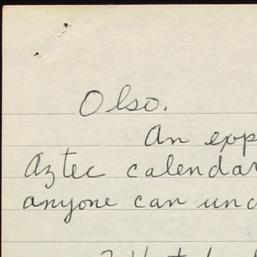 Olso.
An exp
Aztec calendar
anyone can und